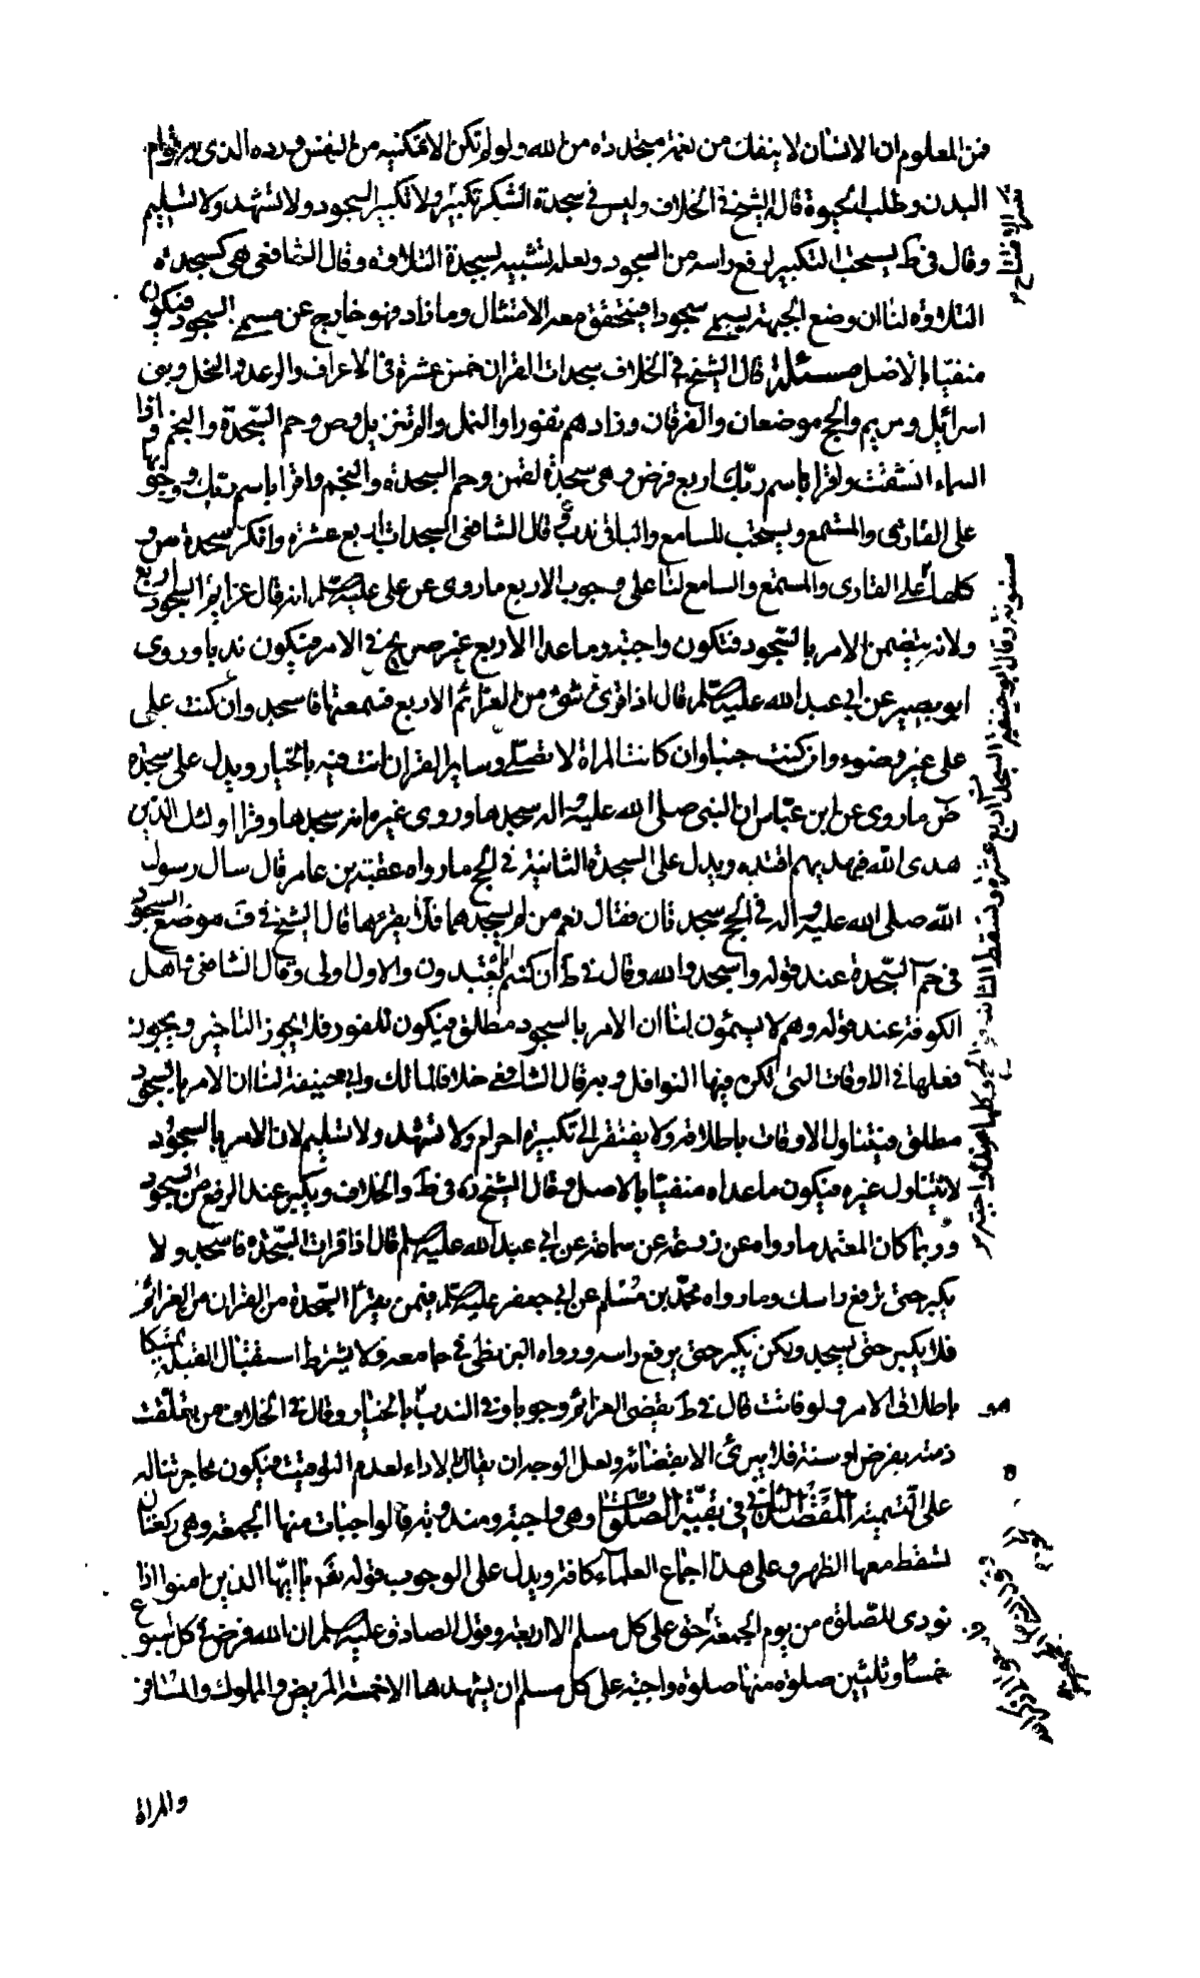 فمن المعلوم ان الانسان لا ينفك من نعمة متجددة من الله ولو لم تكن الا تمكنيه من النفس ورده الذى به قوام
البدن وطلب الحيوة قال الشيخ فى الخلاف وليس فى سجدة الشكر تكبير ولا تكبير السجود ولا تشهد ولا تسليم
وقال فى ط يستحب التكبير لرفع راسه من السجود ولعله تشبيه لسجدة التلاوة وقال الشافعى هى كسجدة
التلاوة لنا ان وضع الجبهة يسمى سجودا فيتحقق معه الامتثال وما زاد فهو خارج عن مسمى السجود فيكون
منفيا بالاصل مسئلة قال الشيخ فى الخلاف سجدات القران خمس عشرة فى الاعراف والرعد والنحل وبنى
اسرائيل ومريم والحج موضعان والفرقان وزادهم نفورا والنمل والم تنزيل وص وحم السجدة والنجم واذا
السماء انشقت واقرا باسم ربك اربع فرض وهى سجدة لقمن وحم السجدة والنجم واقرا باسم ربك ووجوبها
على القارى والمستمع ويستحب للسامع والباقى ندب وقال الشافعى السجدات اربع عشرة وانكر سجدة ص و
كلها على القارى والمستمع والسامع لنا على وجوب الاربع ما روى عن على عليه السلم انه قال عزائم السجود اربع
ولانه يتضمن الامر بالسجود فتكون واجبة وما عدا الاربع غير صريح فى الامر فيكون ندبا وروى
ابو بصير عن ابى عبد الله عليه السلم قال اذا قرئ شئ من العزائم الاربع فسمعتها فاسجد وان كنت على
على غير وضوء وان كنت جنبا وان كانت المراة لا تصلى وساير القران انت فيه بالخيار ويدل على سجدة
ص ما روى عن ابن عباس ان النبى صلى الله عليه واله سجدها وروى غيره انه سجدها وقرا اولئك الذين
هدى الله فبهديهم اقتده ويدل على السجدة الثانية فى الحج ما رواه عقبة بن عامر قال سال رسول
الله صلى الله عليه واله فى الحج سجدتان فقال نعم من لم يسجدهما فلا يقرئها قال الشيخ فى ف موضع السجود
فى حم السجدة عند قوله واسجدوا لله وقال فى ط ان كنتم اياه تعبدون والاول اولى وقال الشافعى واهل
الكوفة عند قوله وهم لا يسئمون لنا ان الامر بالسجود مطلق فيكون للفور فلا يجوز التاخير ويجوز
فعلها فى الاوقات التى تكره فيها النوافل وبه قال الشافعى خلافا لمالك وابى حنيفة لنا ان الامر بالسجود
مطلق فيتناول الاوقات باطلاقه ولا يفتقر الى تكبيرة احرام ولا تشهد ولا تسليم لان الامر بالسجود
لا يتناول غيره فيكون ما عداه منفيا بالاصل وقال الشيخ ره فى ط والخلاف ويكبر عند الرفع من السجود
وربما كان المعتمد ما رواه عن زرعة عن سماعة عن ابى عبد الله عليه السلم قال اذا قرات السجدة فاسجد ولا
يكبر حتى ترفع راسك وما رواه محمد بن مسلم عن ابى جعفر عليه السلم فيمن يقرأ السجدة من القران من العزائم
فلا يكبر حتى يسجد ولكن يكبر حتى يرفع راسه ورواه البزنطى فى جامعه ولا يشترط استقبال القبلة تمسكا
باطلاق الامر ولو فاتت قال فى ط يقضى العزائم وجوبا وفى الندب بالخيار وقال فى الخلاف من تعلقت
ذمته بفرض او سنة فلا يبرئ الا بقضائه ولعل الوجه ان يقال بالاداء لعدم التوقيت فيكون
على التسمية المقصد الثالث فى بقية الصلوات وهى واجبة ومندوبة فالواجبات منها الجمعة وهى ركعتان
تسقط معها الظهر وعلى هذا اجماع العلماء كافة ويدل على الوجوب قوله تعم يا ايها الذين امنوا اذا
نودى للصلوة من يوم الجمعة حق على كل مسلم الا اربعة وقول الصادق عليه السلم ان الله فرض فى كل اسبوع
خمسا وثلثين صلوة منها صلوة واجبة على كل مسلم ان يشهدها الا خمسة المريض والمملوك والمسافر
والمراة
تكبير الافتتاح
مسنونة وقال ابو حنيفة السجدات اربع عشرة وتسقط الثانية فى الحج وكلها واجبة